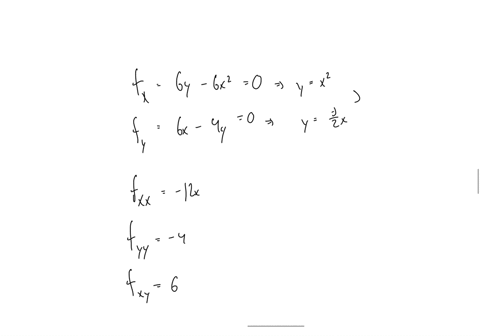 f_x = 6y - 6x² = 0 ⇒ y = x²
f_y = 6x - 4y = 0 ⇒ y = 3/2 x
f_xx = -12x
f_yy = -4
f_xy = 6